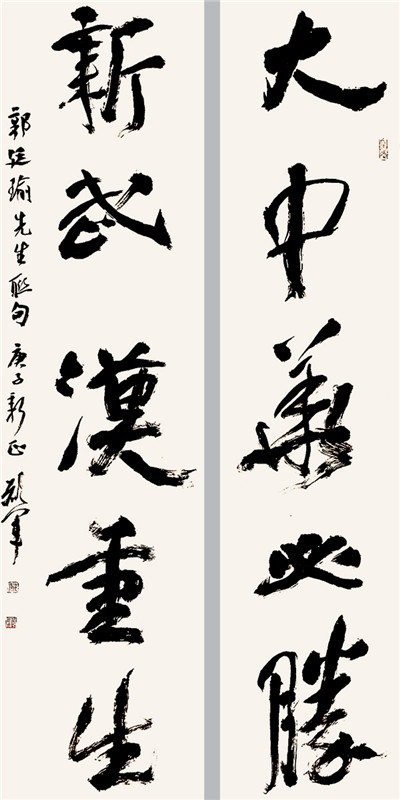 大中華必勝
新武漢重生
郭廷瑜先生聯句 庚子新正 顏軍